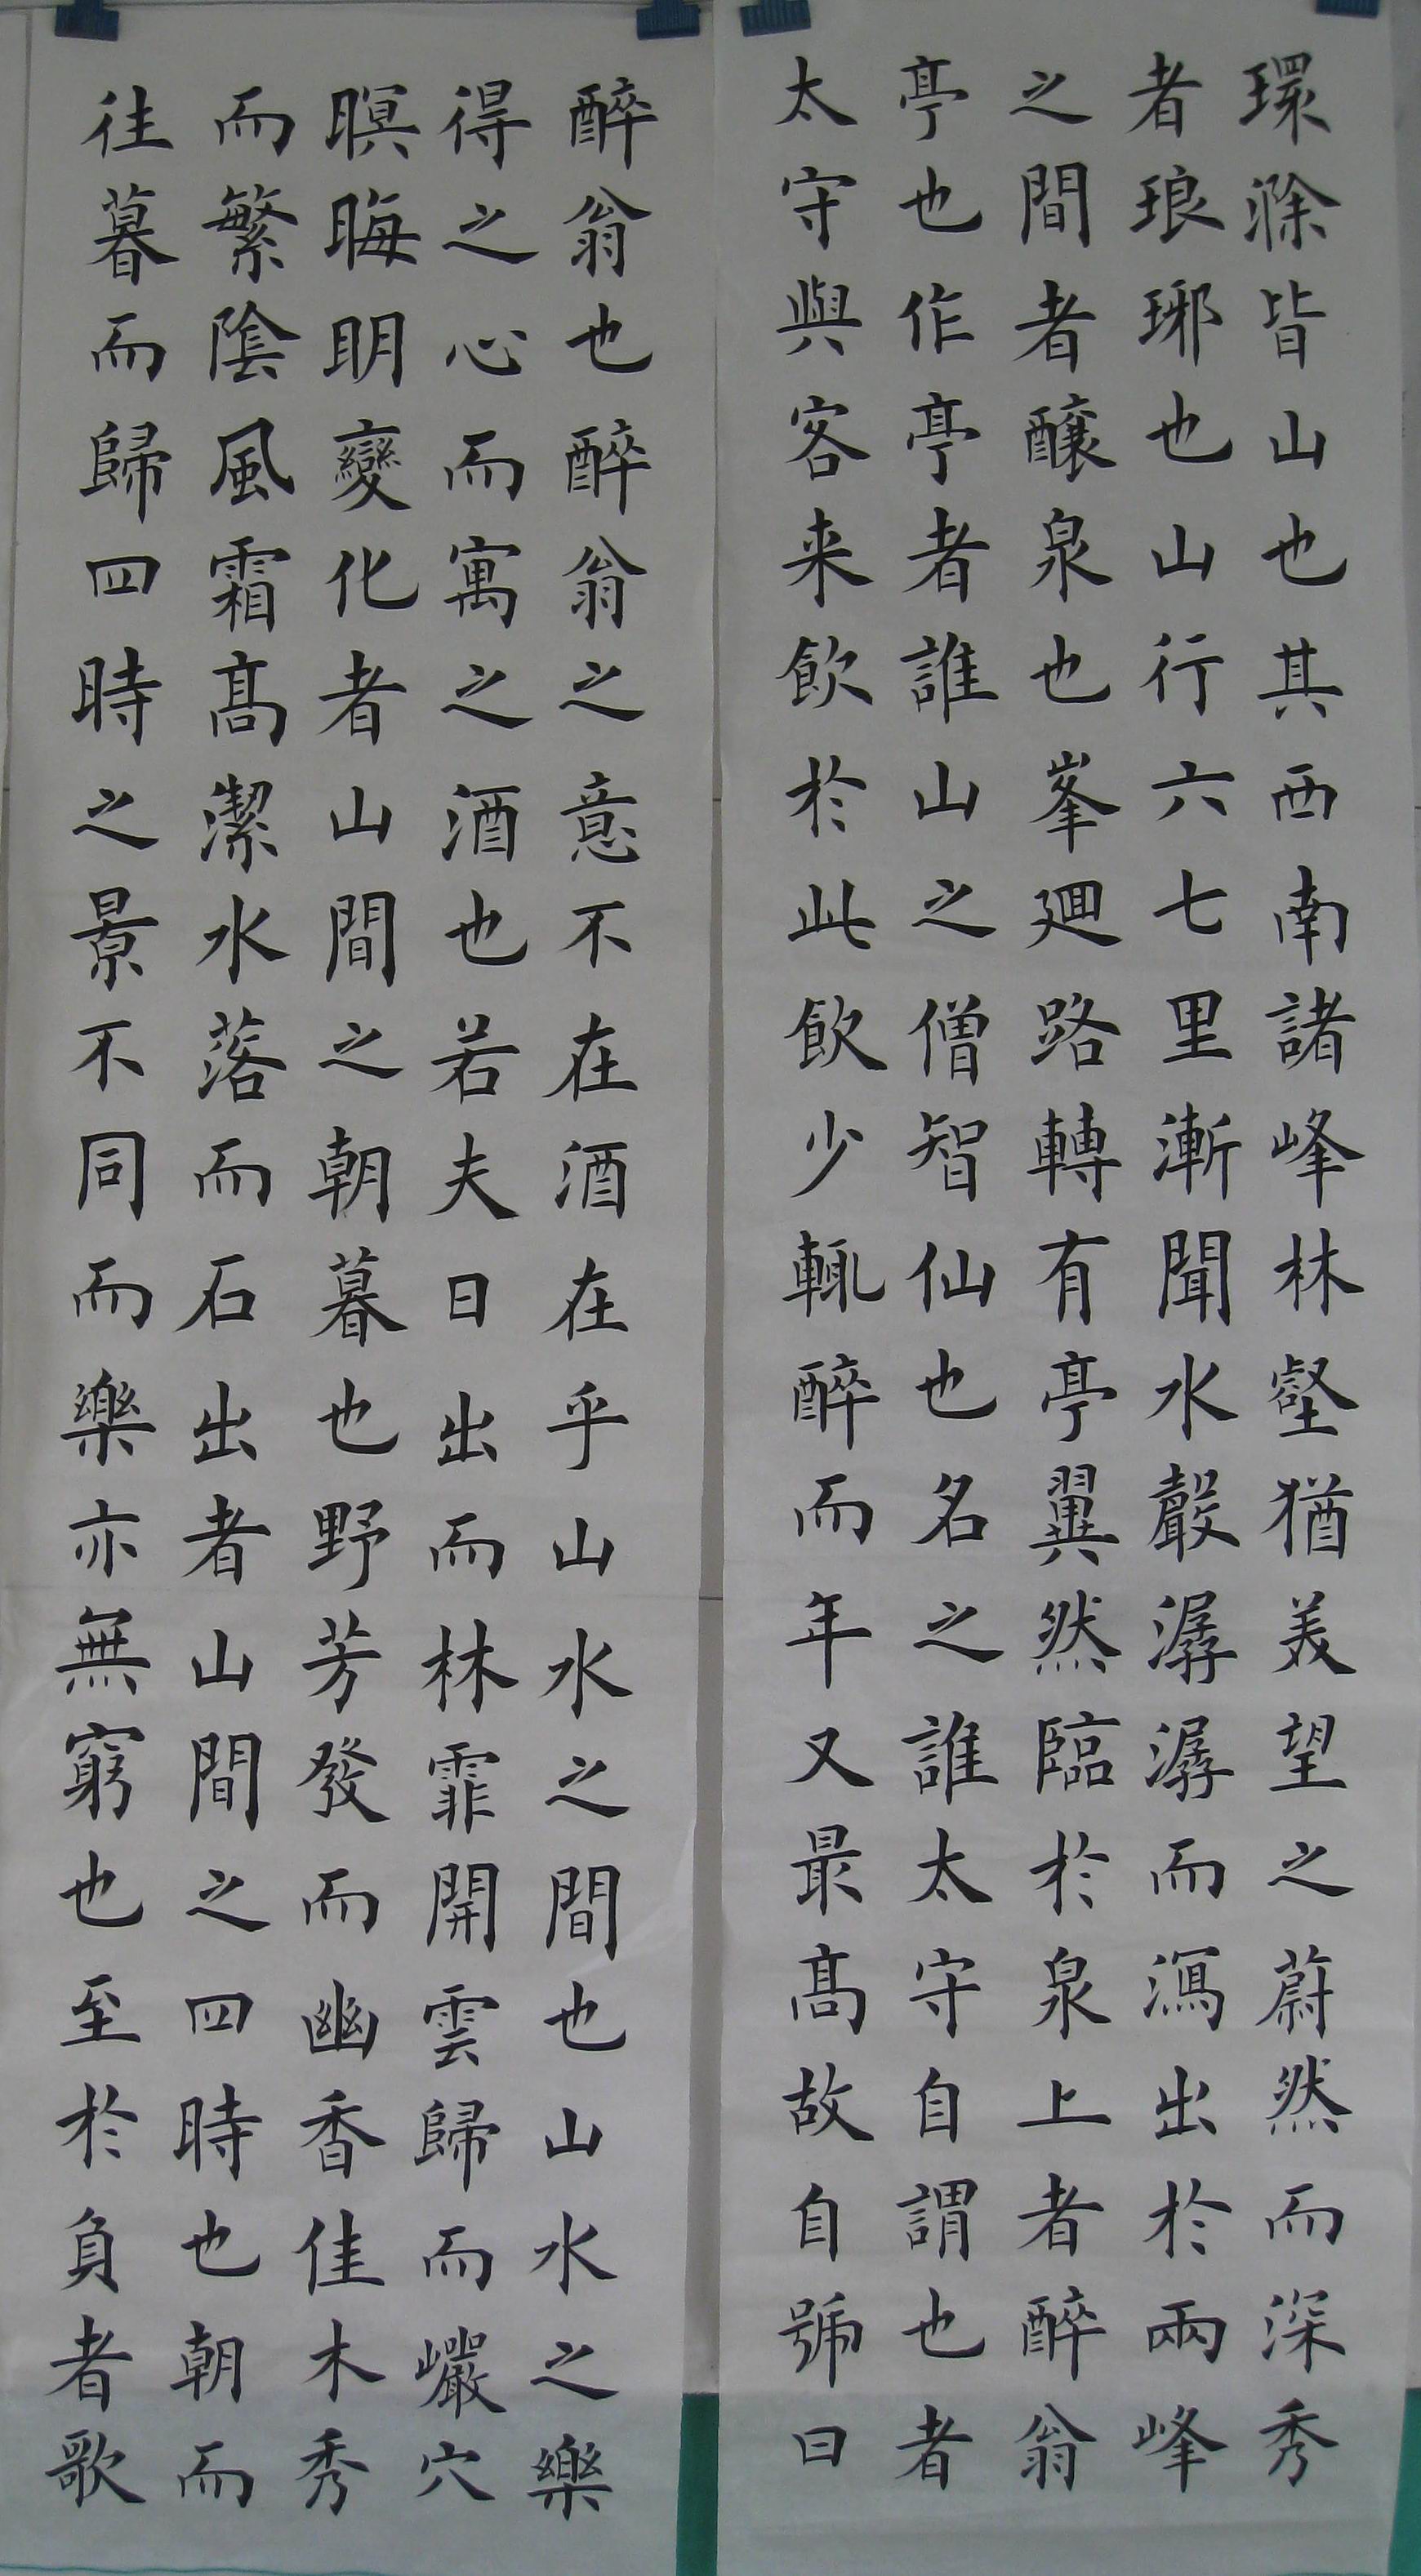 環滁皆山也其西南諸峰林壑猶美望之蔚然而深秀
者琅琊也山行六七里漸聞水聲潺潺而瀉出於兩峰
之間者釀泉也峯廻路轉有亭翼然臨於泉上者醉翁
亭也作亭者誰山之僧智仙也名之誰太守自謂也者
太守與客来飲於此飲少輒醉而年又最髙故自號曰
醉翁也醉翁之意不在酒在乎山水之間也山水之樂
得之心而寓之酒也若夫日出而林霏開雲歸而巖穴
暝晦明變化者山間之朝暮也野芳發而幽香佳木秀
而繁陰風霜髙潔水落而石出者山間之四時也朝而
往暮而歸四時之景不同而樂亦無窮也至於負者歌